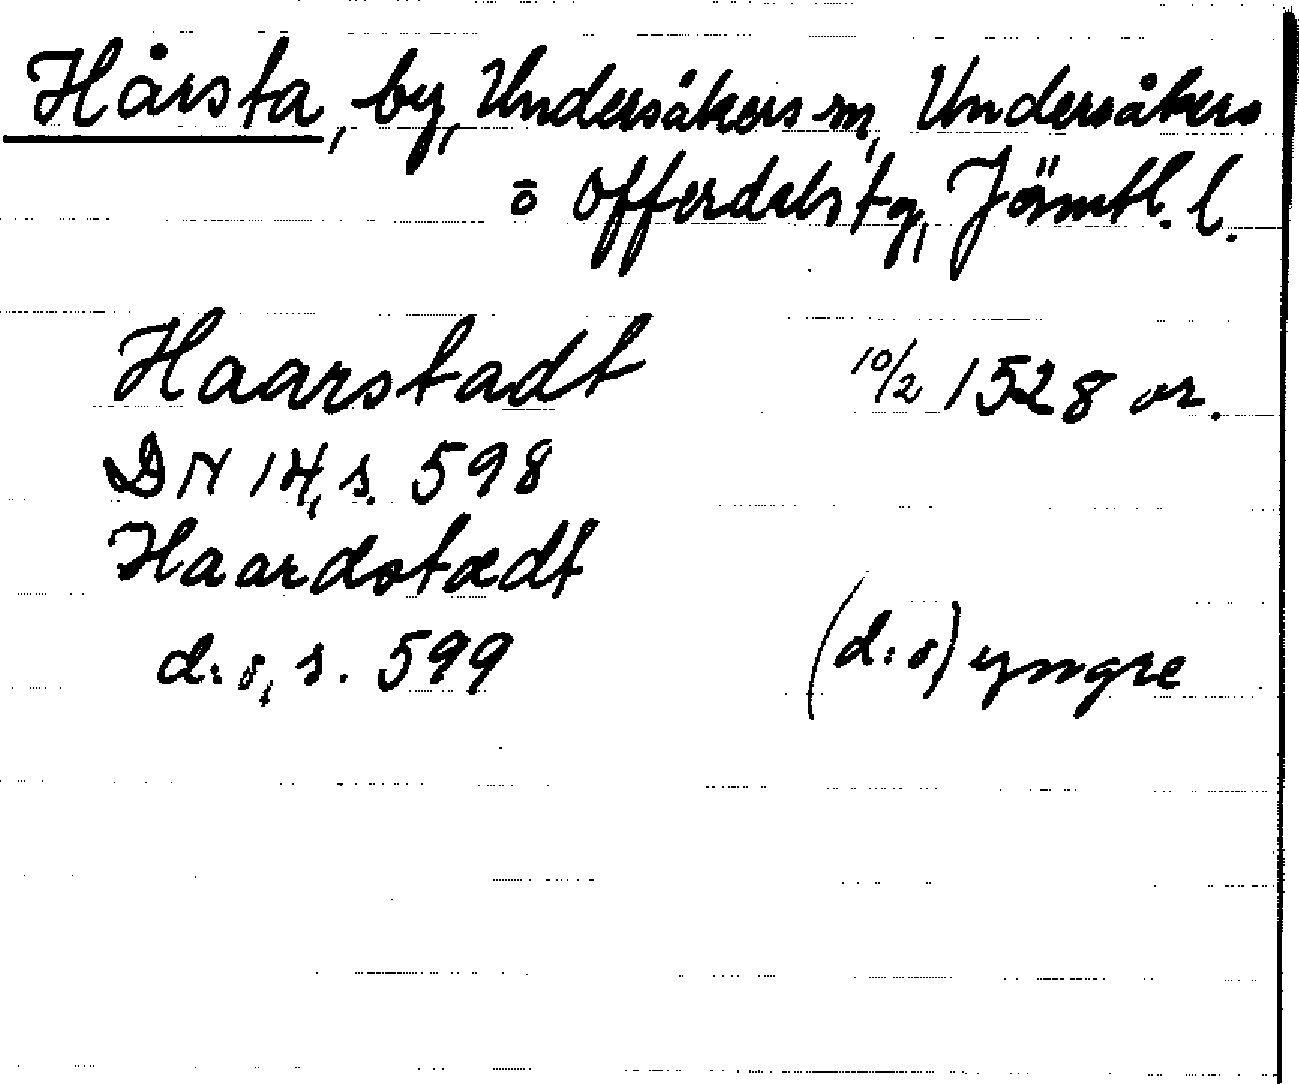 Hårsta, by, Undersåkers sn, Undersåkers
o̅ Offerdals tg, Jämtl. l.
Haarstadt 10/2 1528 or.
DN 14, s. 598
Haardstædt
d:o, s. 599 (d:o) yngre